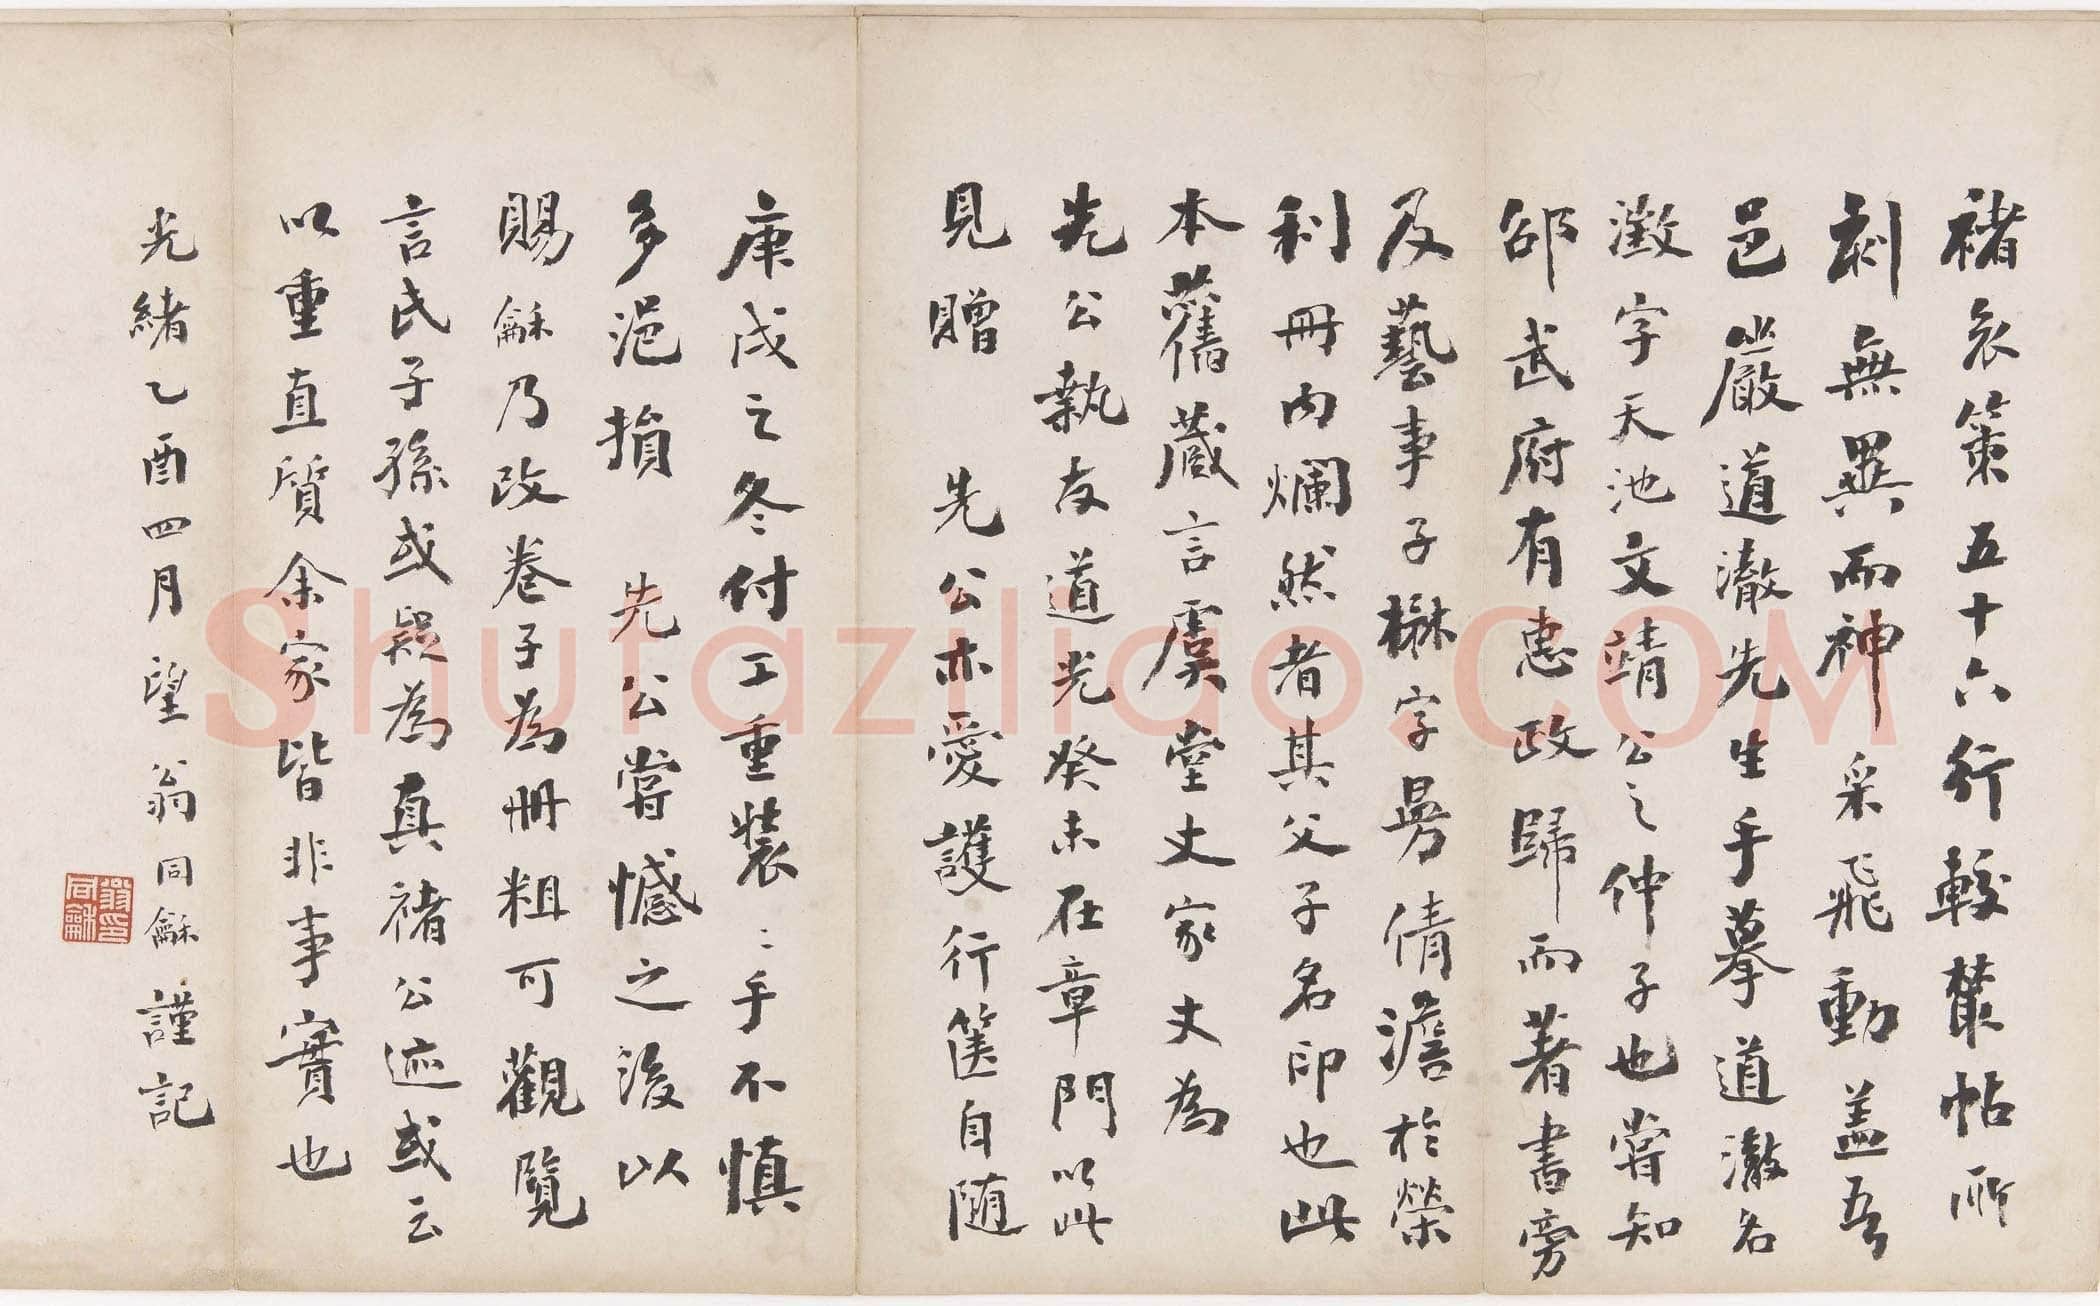 褚哀策五十六行較叢帖所
刻無異而神采飛動蓋吾
邑嚴道澈先生手摹道澈名
澂字天池文靖公之仲子也嘗知
邵武府有惠政歸而著書旁
及藝事子楙字曼倩澹於榮
利冊內爛然者其父子名印也此
本舊藏言虞堂丈家丈為
先公執友道光癸未在章門以此
見贈 先公亦愛護行篋自隨
庚戌之冬付工重裝〻手不慎
多浥損 先公嘗憾之後以
賜龢乃改卷子為冊粗可觀覽
言氏子孫或疑為真褚公迹或云
以重直質余家皆非事實也
光緒乙酉四月望翁同龢謹記
翁同龢印
Shufaziliao.COM